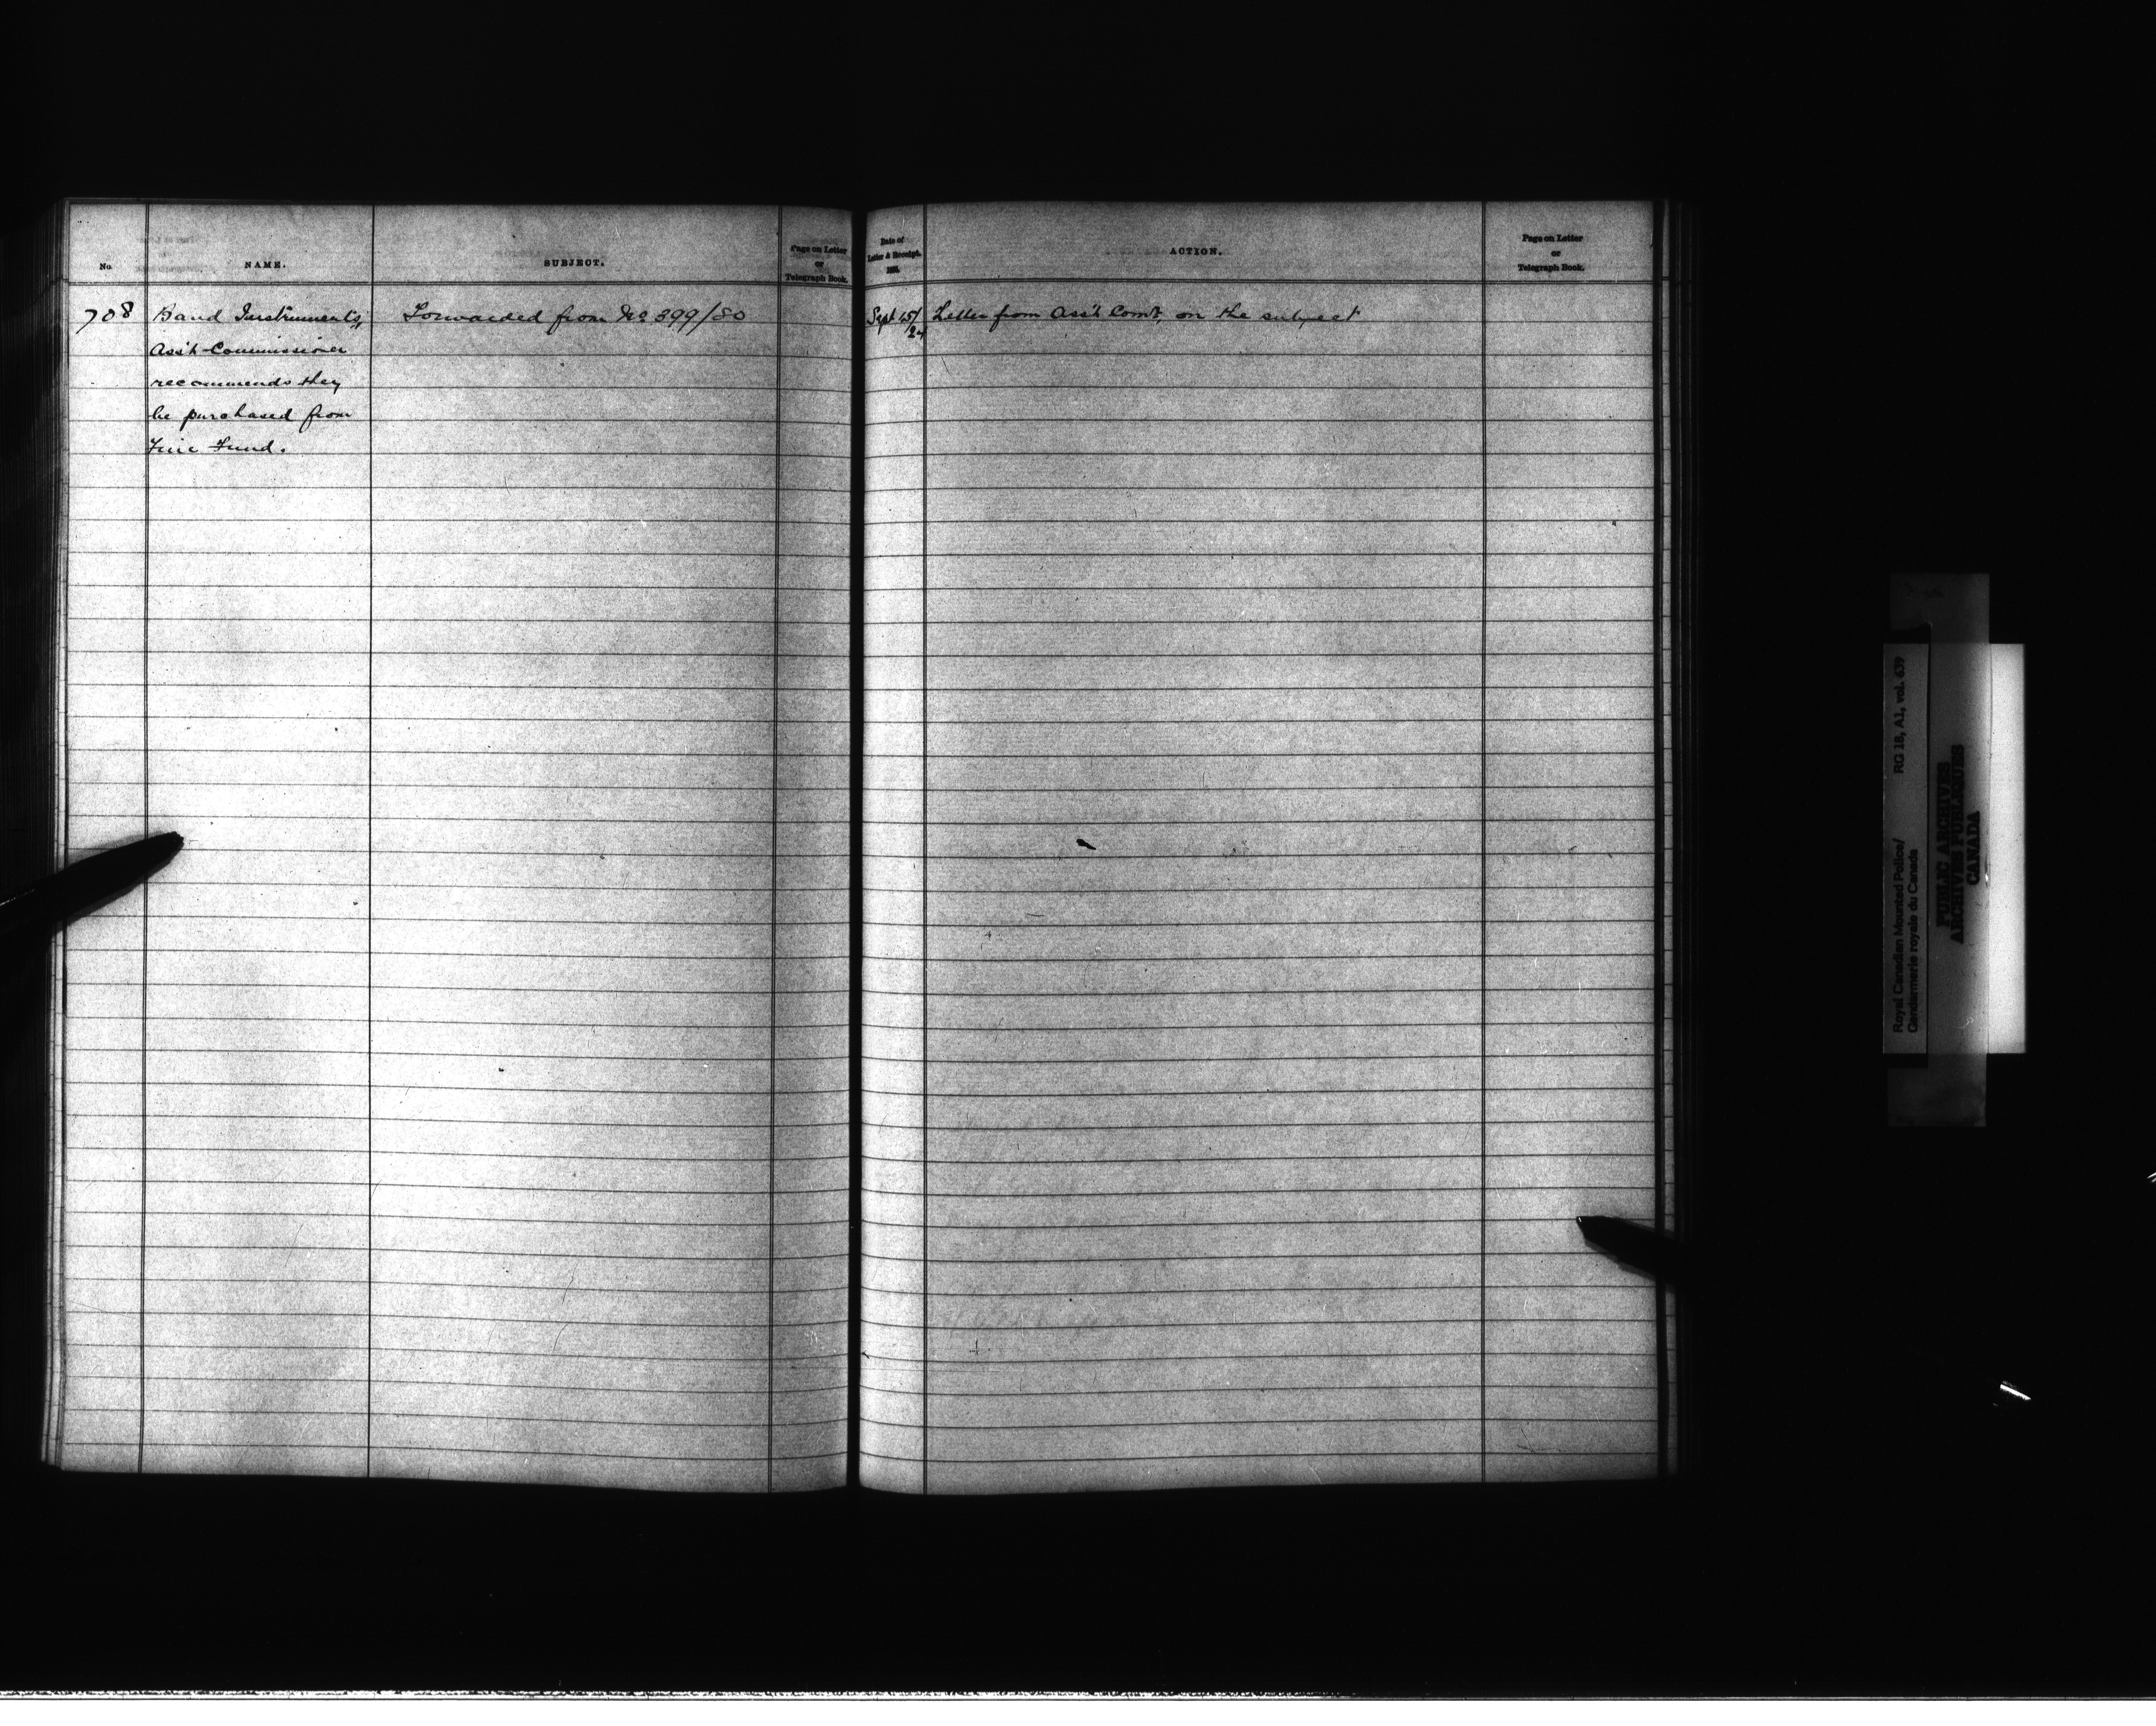 No.
NAME.
SUBJECT.
Page on Letter
or
Telegraph Book.
Date of
Letter & Receipt.
ACTION.
Page on Letter
or
Telegraph Book.
708
Band Instruments,
Ass't Commissioner
recommends they
be purchased from
Fine Fund.
Forwarded from No 399/80
Sept 15/
24
Letter from Ass't Comr. on the subject
Royal Canadian Mounted Police/ RG 18, A1, vol. 639
Gendarmerie royale du Canada
PUBLIC ARCHIVES
ARCHIVES PUBLIQUES
CANADA